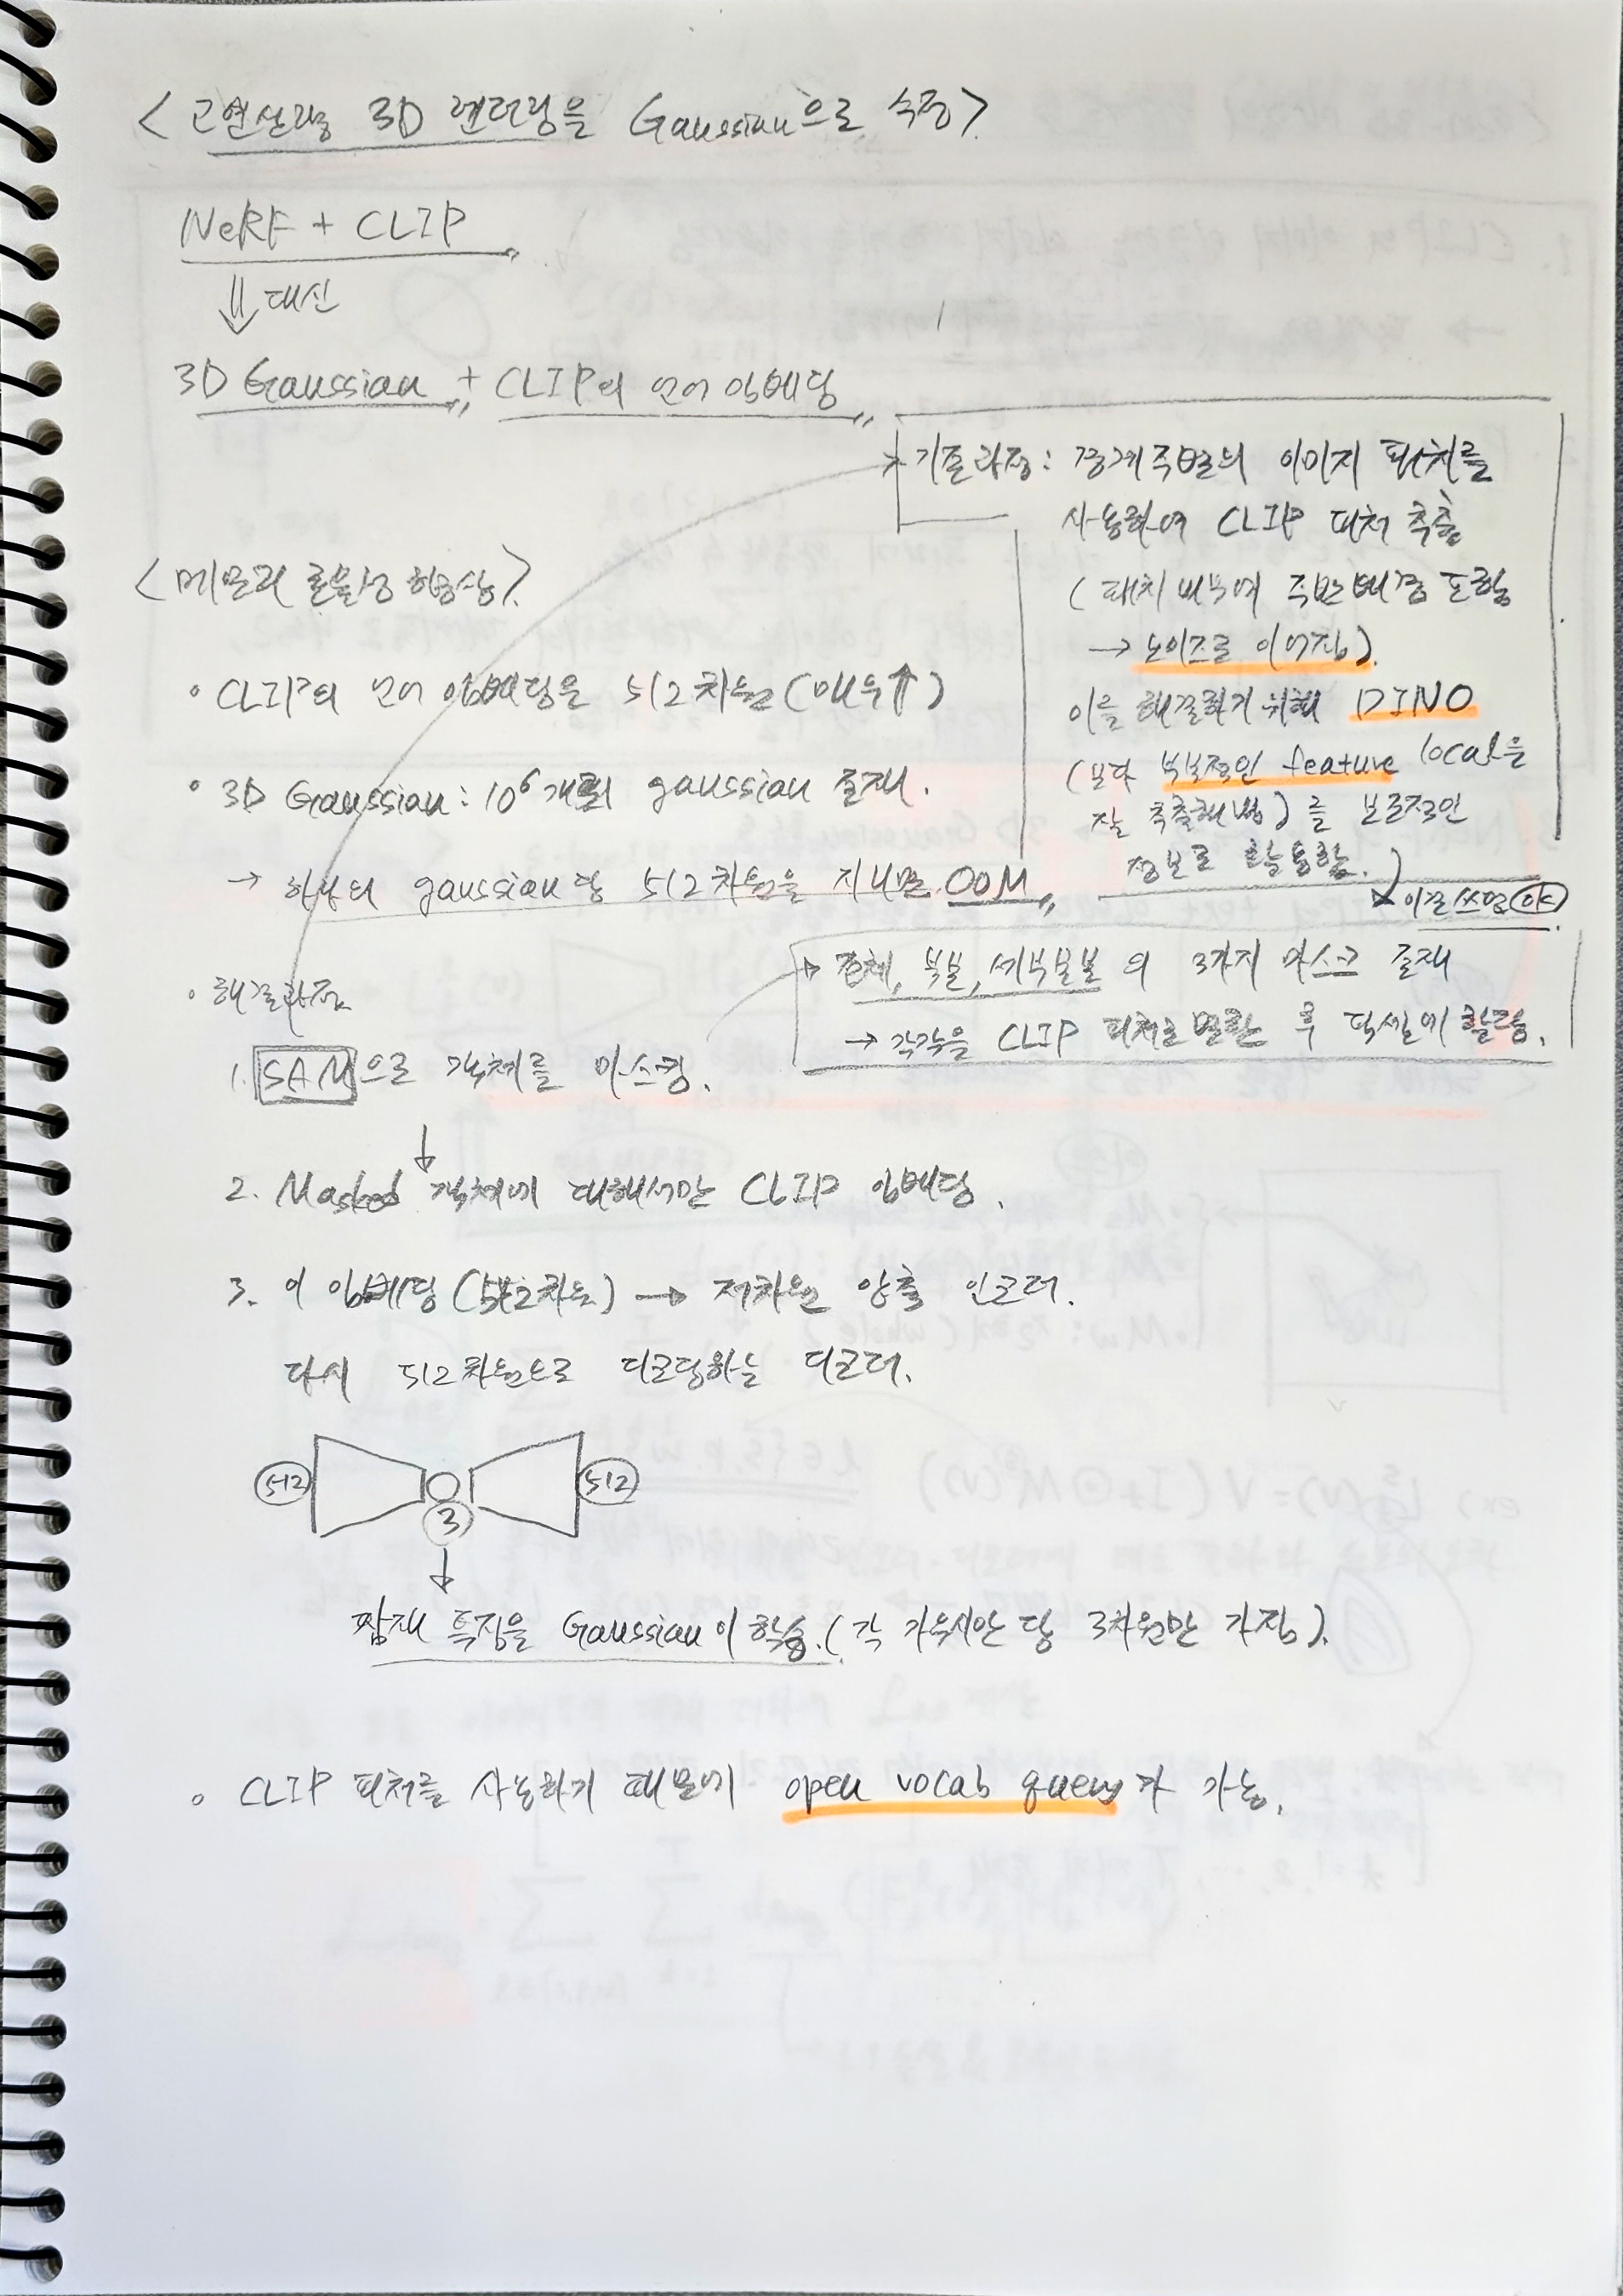 < 고연산량 3D 렌더링을 Gaussian으로 수정>
NeRF + CLIP
⇓ 대신
3D Gaussian + CLIP의 언어 임베딩
기존과정: 경계주변의 이미지 패치를
사용하여 CLIP 피처 추출
(패치 내부에 주변배경 포함
→ 노이즈로 이어짐).
이를 해결하기 위해 DINO
(보다 부분적인 feature local을
잘 추출해냄)를 보조적인
정보로 활용함.
이걸 쓰면
<메모리 효율성 향상>
• CLIP의 언어 임베딩은 512차원(매우↑)
• 3D Gaussian: 10⁶개의 gaussian 존재.
→ 하나의 gaussian당 512차원을 지니면 OOM
• 해결과정
전체, 부분, 세부부분의 3가지 마스크 존재
→ 각각을 CLIP 피처로 변환 후 픽셀에 할당.
1. SAM으로 객체를 마스킹.
↓
2. Masked 객체에 대해서만 CLIP 임베딩.
3. 이 임베딩(512차원) → 저차원 압축 인코더.
다시 512차원으로 디코딩하는 디코더.
512 512
3
↓
잠재 특징을 Gaussian이 학습.(각 가우시안 당 3차원만 가짐).
• CLIP 피처를 사용하기 때문에 open vocab query가 가능.